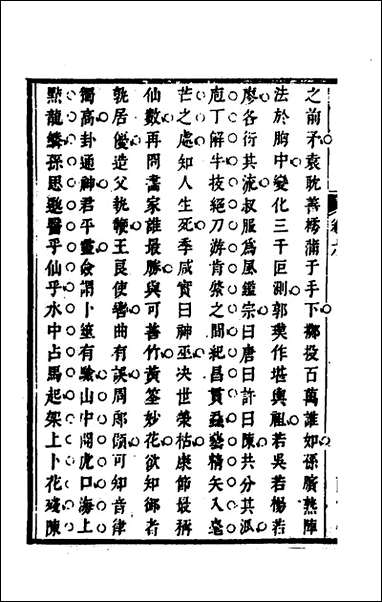 之前矛袁耽善樗蒲于手下擲投百萬誰如孫臏熟陣
法於胸中變化三千叵測郭璞作堪輿祖若吳若楊若
廖各衍其流叔服為風鑑宗曰唐曰許曰陳共分其派
庖丁解牛技絕刀游肯綮之間紀昌貫蝨藝精矢入毫
芒之處知人生死季咸實曰神巫决世榮枯康節最稱
仙數再問畫家誰最勝與可善竹黃筌妙花欲知御者
孰居優造父執鞭王良使轡曲有誤周郎顧可知音律
獨高卦通神君平靈僉謂卜筮有驗山中開虎口海上
點龍鱗孫思邈醫乎仙乎水中占馬起架上卜花殘陳
卷六